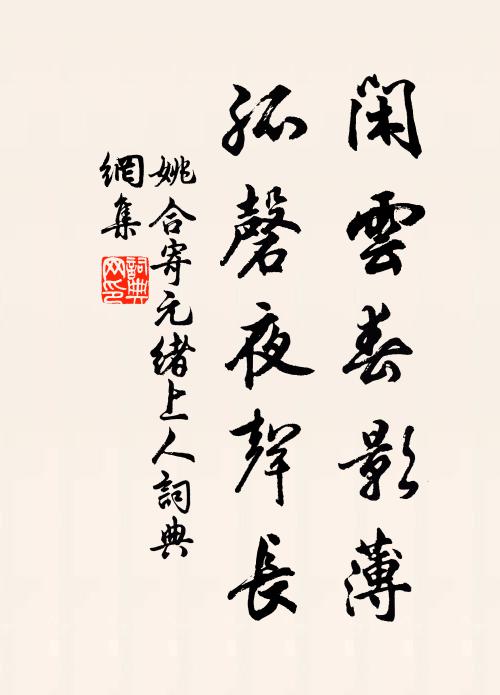 閑雲春影薄
孤磬夜聲長
姚合寄元緒上人詞典
網集
詞典
网印